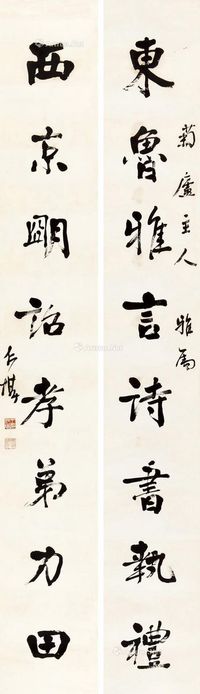 菊廬主人 雅屬
東魯雅言詩書執禮
西京明詔孝弟力田